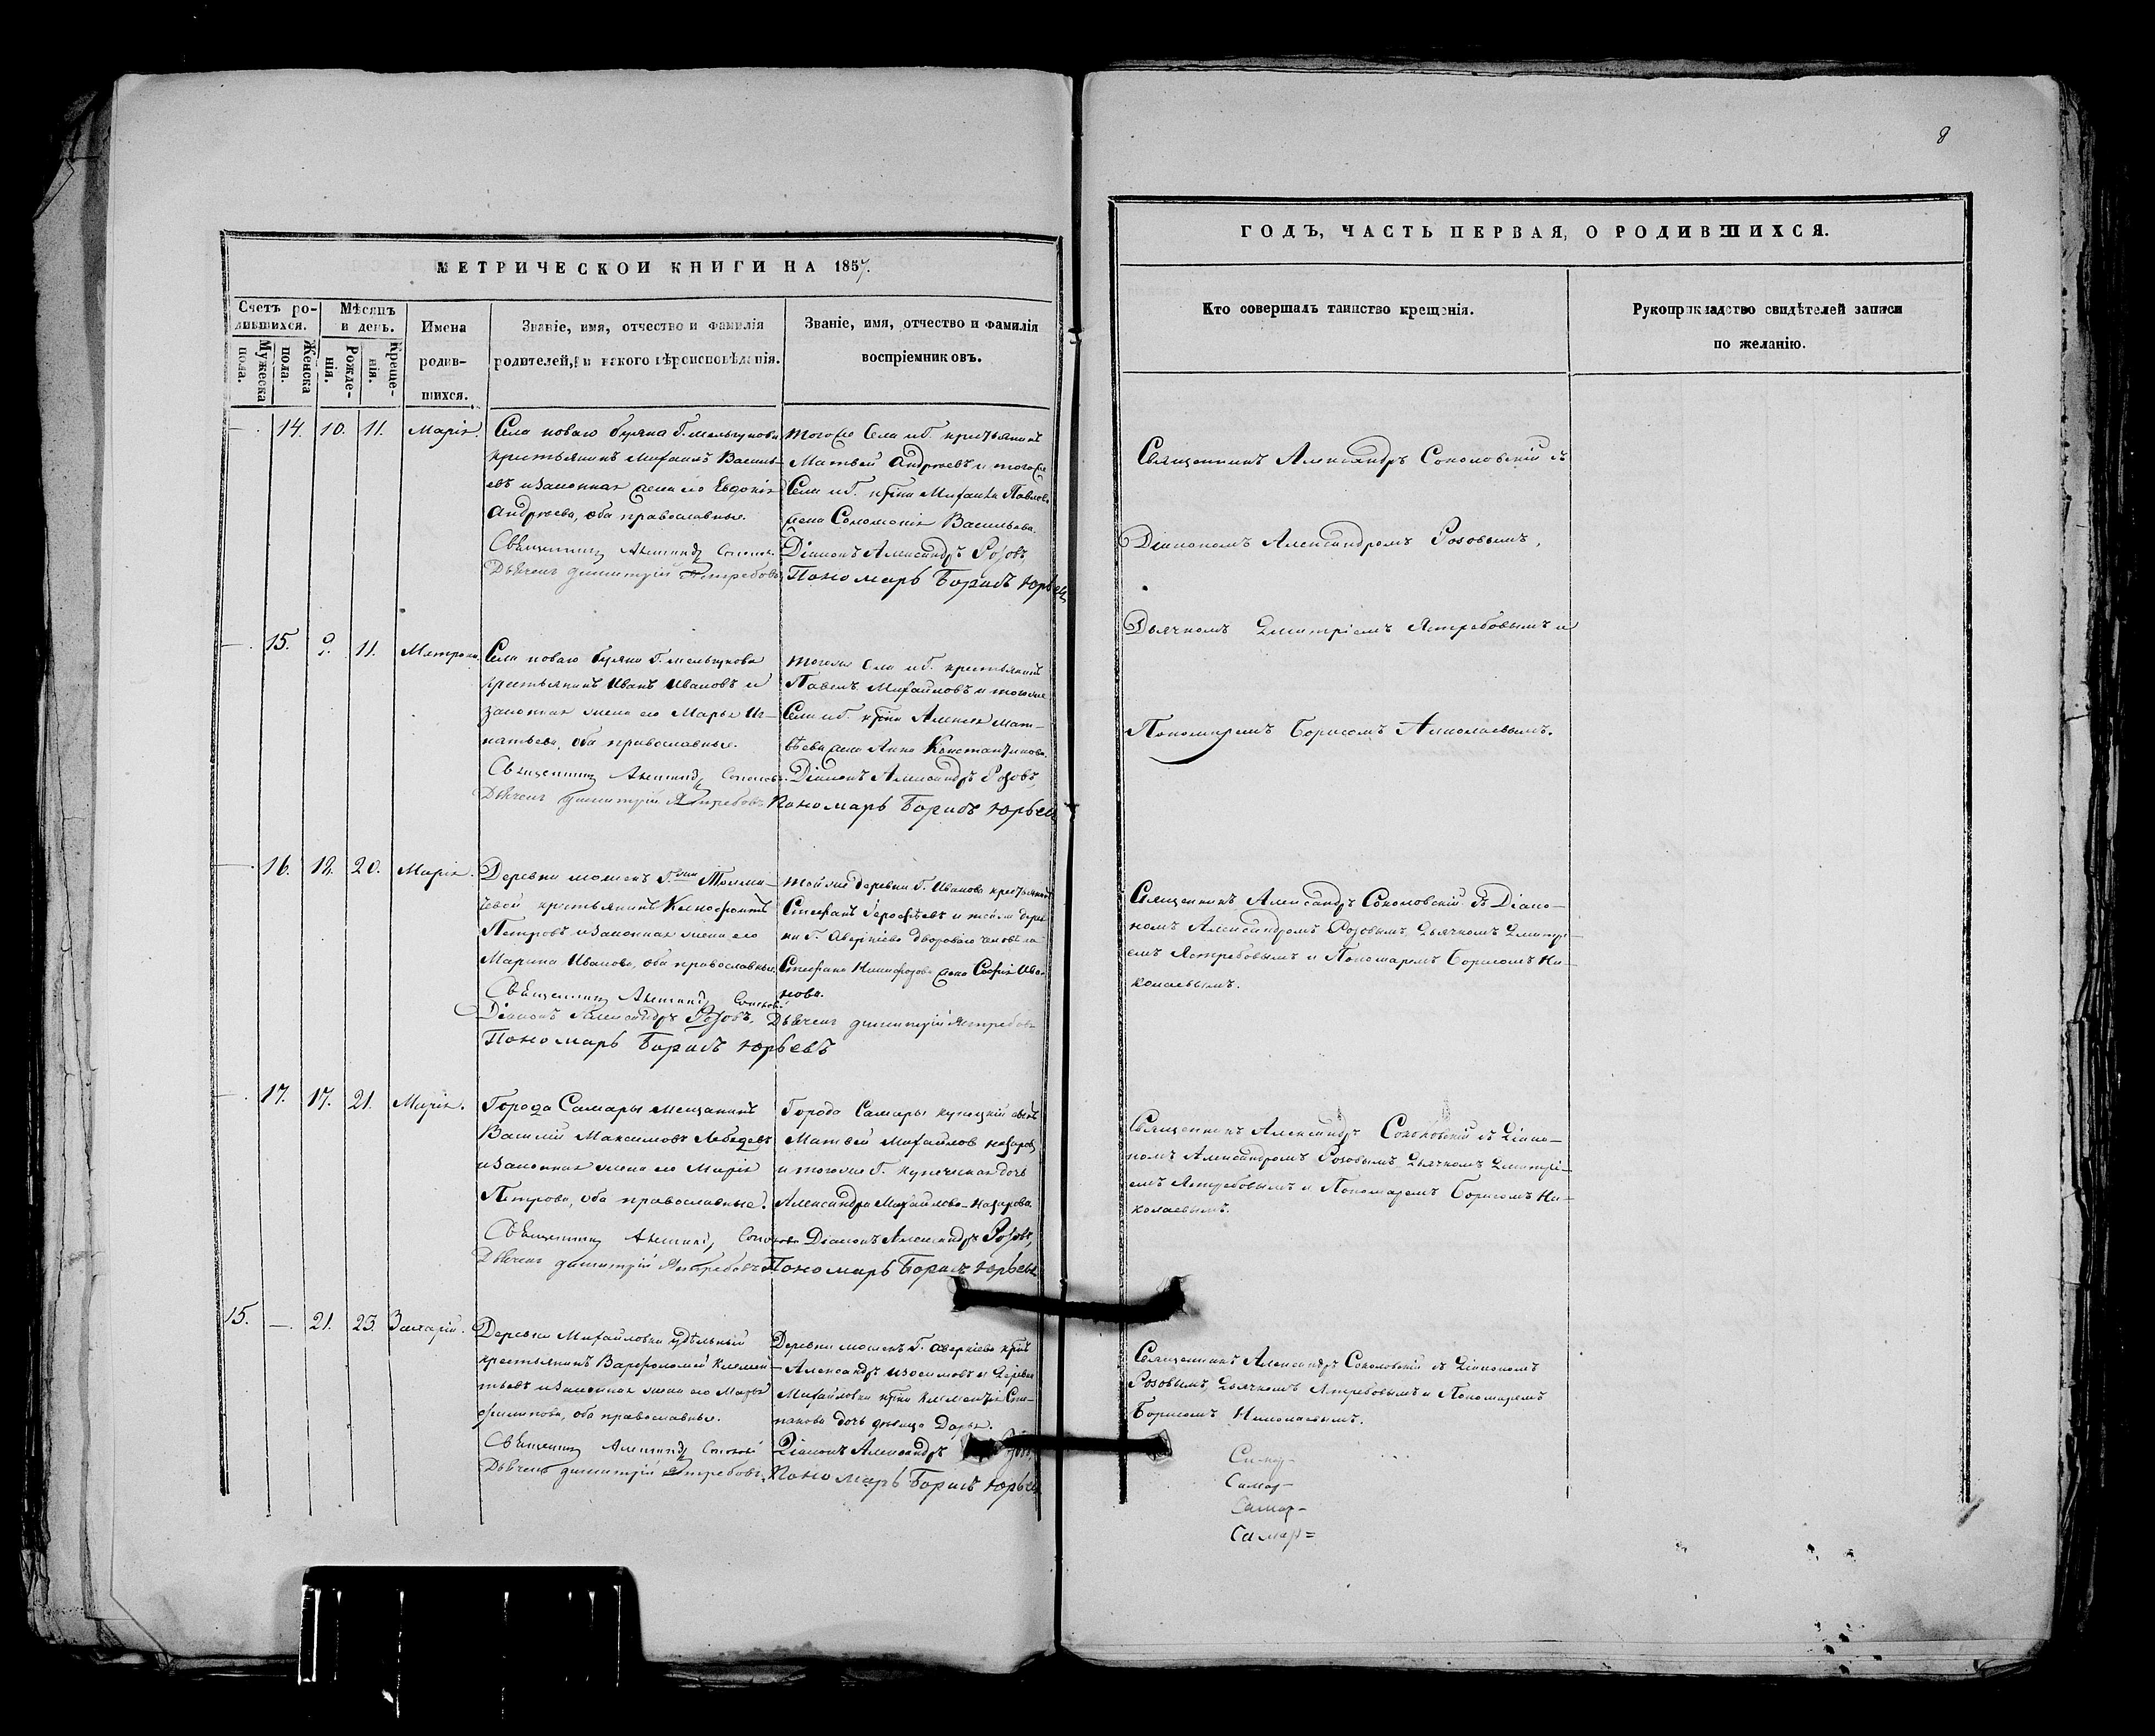 8
МЕТРИЧЕСКОЙ КНИГИ НА 1857.
Счетъ родившихся.
Мужеска пола.
Женска пола.
Мѣсяцъ и день.
Рожденія.
Крещенія.
Имена родившихся.
Званіе, имя, отчество и фамилія
родителей, и какого вѣроисповѣданія.
Званіе, имя, отчество и фамилія
воспріемниковъ.
—. 14. 10. 11. Марія.
Села новаго Буяна Г. Мельгунова
крестьянинъ Михаилъ Василь-
евъ и законная жена его Евдокія
Андреева, оба православные.
Священникъ Александръ Соколов.
Дьячекъ Димитрій Ястребовъ
Тогоже Села и Г. крестьянинъ
Матвей Андреевъ и тогоже
Села и Г. кр҃на Михаила Павлова
жена Соломонія Васильева.
Діаконъ Александръ Розовъ,
Пономарь Борисъ Юрьев
—. 15. 9. 11. Матрона.
Села новаго Буяна Г. Мельгунова
крестьянинъ Иванъ Ивановъ и
законная жена его Марья Иг-
натьева, оба православные.
Священникъ Александръ Соколов.
Дьячекъ Димитрій Ястребовъ
Тогоже Села и Г. крестьянинъ
Павелъ Михайловъ и тогоже
Села и Г. кр҃на Алексея Мат-
вѣева жена Анна Константинова.
Діаконъ Александръ Розовъ,
Пономарь Борисъ Юрьев
—. 16. 12. 20. Марія.
Деревни
крестьянинъ Ксенофонтъ
Петровъ и законная жена его
Марина Иванова, оба православные.
Священникъ Александръ Соколов.
Діаконъ Александръ Розовъ,
Пономарь Борисъ Юрьевъ
Тойже деревни Г. Иванова крестьянинъ
Стефанъ Ерофѣевъ и тойже дерев-
ни Г. Аверкіева двороваго человѣка
Стефана Никифорова жена Софія Ива-
нова.
Дьячекъ Димитрій Ястребовъ
—. 17. 17. 21. Марія.
Города Самары мещанинъ
Василій Максимовъ Лебедевъ
и законная жена его Марія
Петрова, оба православные.
Священникъ Александръ Соколов
Дьячекъ Димитрій Ястребовъ
Города Самары купецкій сынъ
Матвей Михайлов Назаровъ
и тогоже Г. купеческая дочь
Александра Михайлова Назарова.
Діаконъ Александръ Розовъ,
Пономарь Борисъ Юрьевъ
15. —. 21. 23. Захарій.
Деревни Михайловки удѣльный
крестьянинъ Варфоломей Клемен-
тьевъ и законная жена его Марья
Филипова, оба православные.
Священникъ Александръ Соколов
Дьячекъ Димитрій Ястребовъ.
Деревни Г. Аверкіева кр҃нъ
Александръ Изосимовъ и Деревни
Михайловки кр҃на Клементія Сте-
панова дочь девица Дарья.
Діаконъ Александръ
Пономарь Борисъ Юрьев
ГОДЪ, ЧАСТЬ ПЕРВАЯ, О РОДИВШИХСЯ.
Кто совершалъ таинство крещенія.
Рукоприкладство свидѣтелей записи
по желанію.
Священникъ Александръ Соколовскій съ
Діакономъ Александромъ Розовымъ,
Дьячкомъ Димитріемъ Ястребовымъ и
Пономаремъ Борисомъ Николаевымъ.
Священникъ Александръ Соколовскій съ Діако-
номъ Александромъ Розовымъ, Дьячкомъ Димитрі-
емъ Ястребовымъ и Пономаремъ Борисомъ Ни-
колаевымъ.
Священникъ Александръ Соколовскій съ Діако-
номъ Александромъ Розовымъ, Дьячкомъ Димитрі-
емъ Ястребовымъ и Пономаремъ Борисомъ Ни-
колаевымъ.
Священникъ Александръ Соколовскій съ Діакономъ
Розовымъ, Дьячкомъ Ястребовымъ и Пономаремъ
Борисомъ Николаевымъ.
Самар-
Самар-
Самар-
Самар=